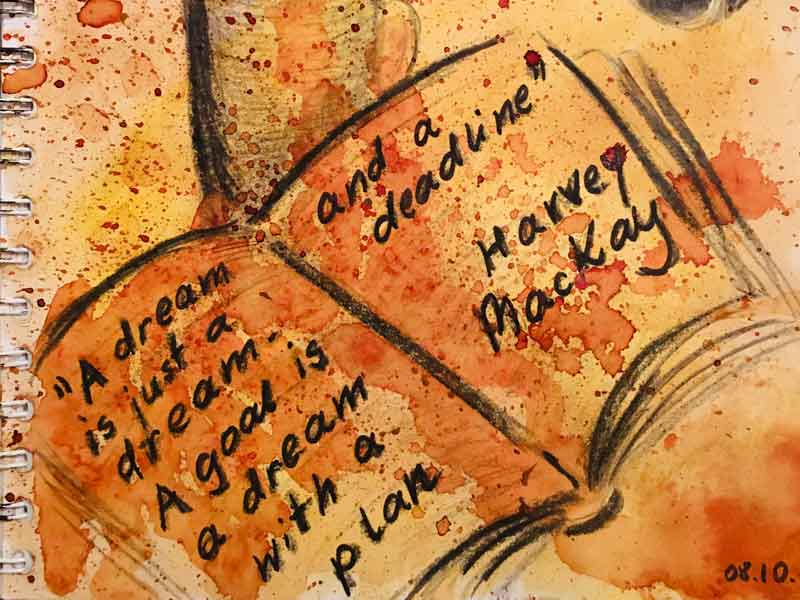 "A dream
is just a
dream.
A goal is
a dream
with a
plan
and a
deadline"
Harvey
MacKay
08.10.